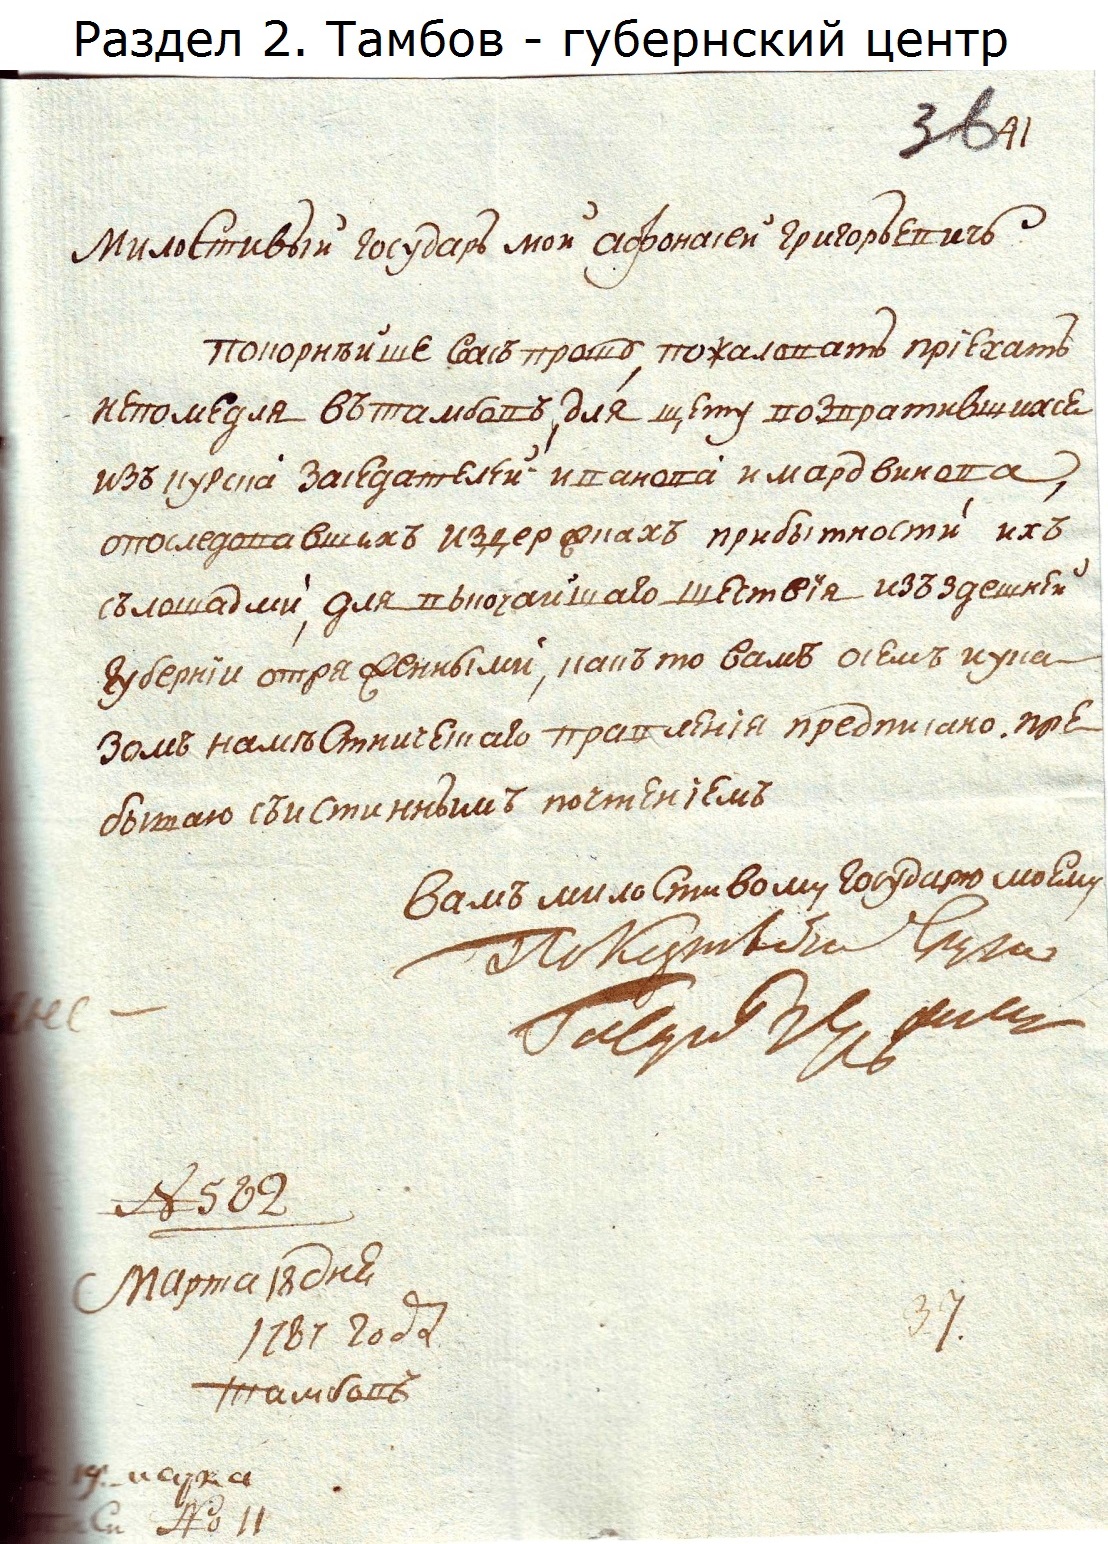 Раздел 2. Тамбов - губернский центр
41
Милостивый государь мой афонасей григорьевичь
покорнѣйше васъ прошу, пожаловать приехать
непомедля вътамбовъ, для щету возвратившихсе
изъ курска заседателей иванова и мардвинова,
опоследовавшихъ издержкахъ прибытности ихъ
сълошадми, для высочайшаго шествія изъздешней
губерніи отряженными, какъ то вамъ осемъ иука
зомъ намѣстническаго правленія предписано. пре
бываю съистиннымъ почтеніемъ
вамъ милостивому государю моему
покорный слуга
№ 582
Марта 18 дня
1787 года
тамбовъ
37.
марта
№ 11